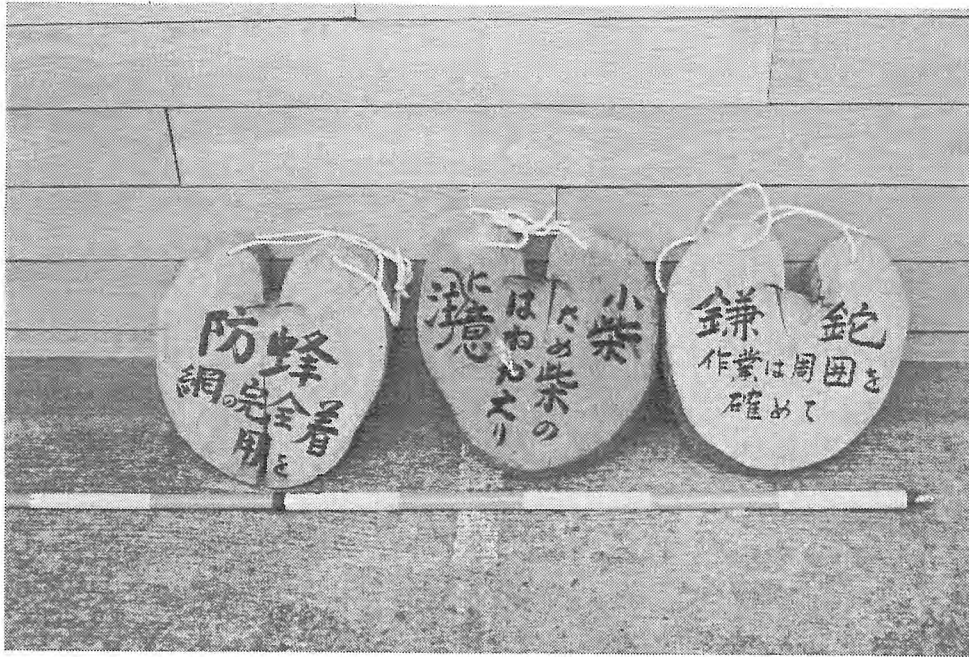 防蜂
網の完全着
用を
小柴
ため柴の
はねかえり
に注意
鎌 鉈
作業は周囲を
確めて